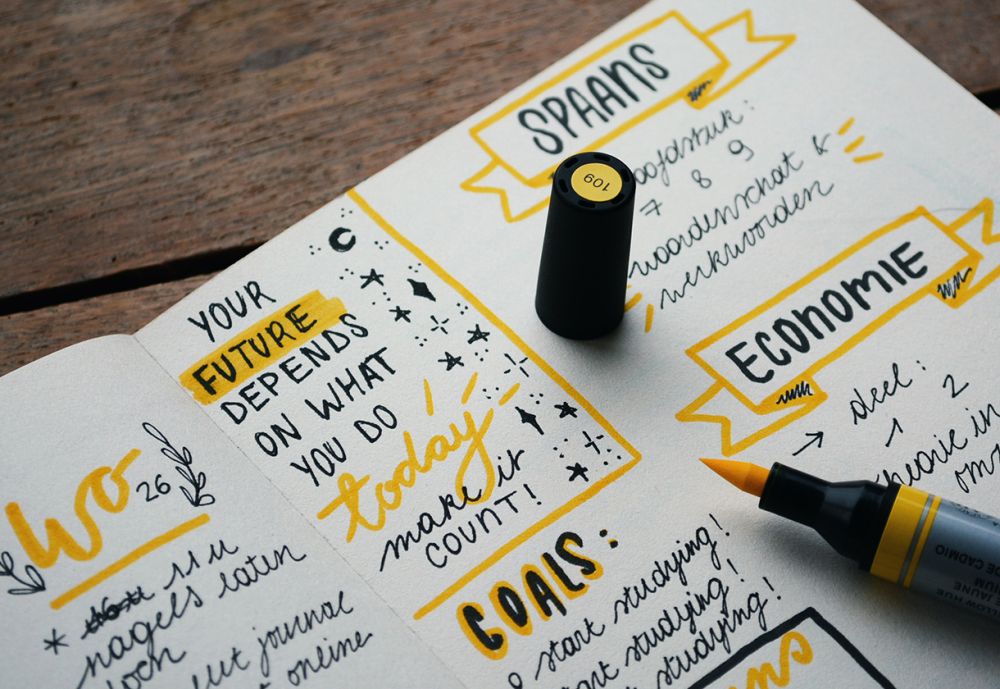 Wo
26
11 u
nagels laten
journal
online
YOUR
FUTURE
DEPENDS
ON WHAT
YOU DO
today
make it
COUNT!
GOALS:
start studying!
studying!
studying!
SPAANS
7 8 9
woordenschat &
werkwoorden
ECONOMIE
→ deel:
1 2
in
109
DE CADMIO
JAUNE